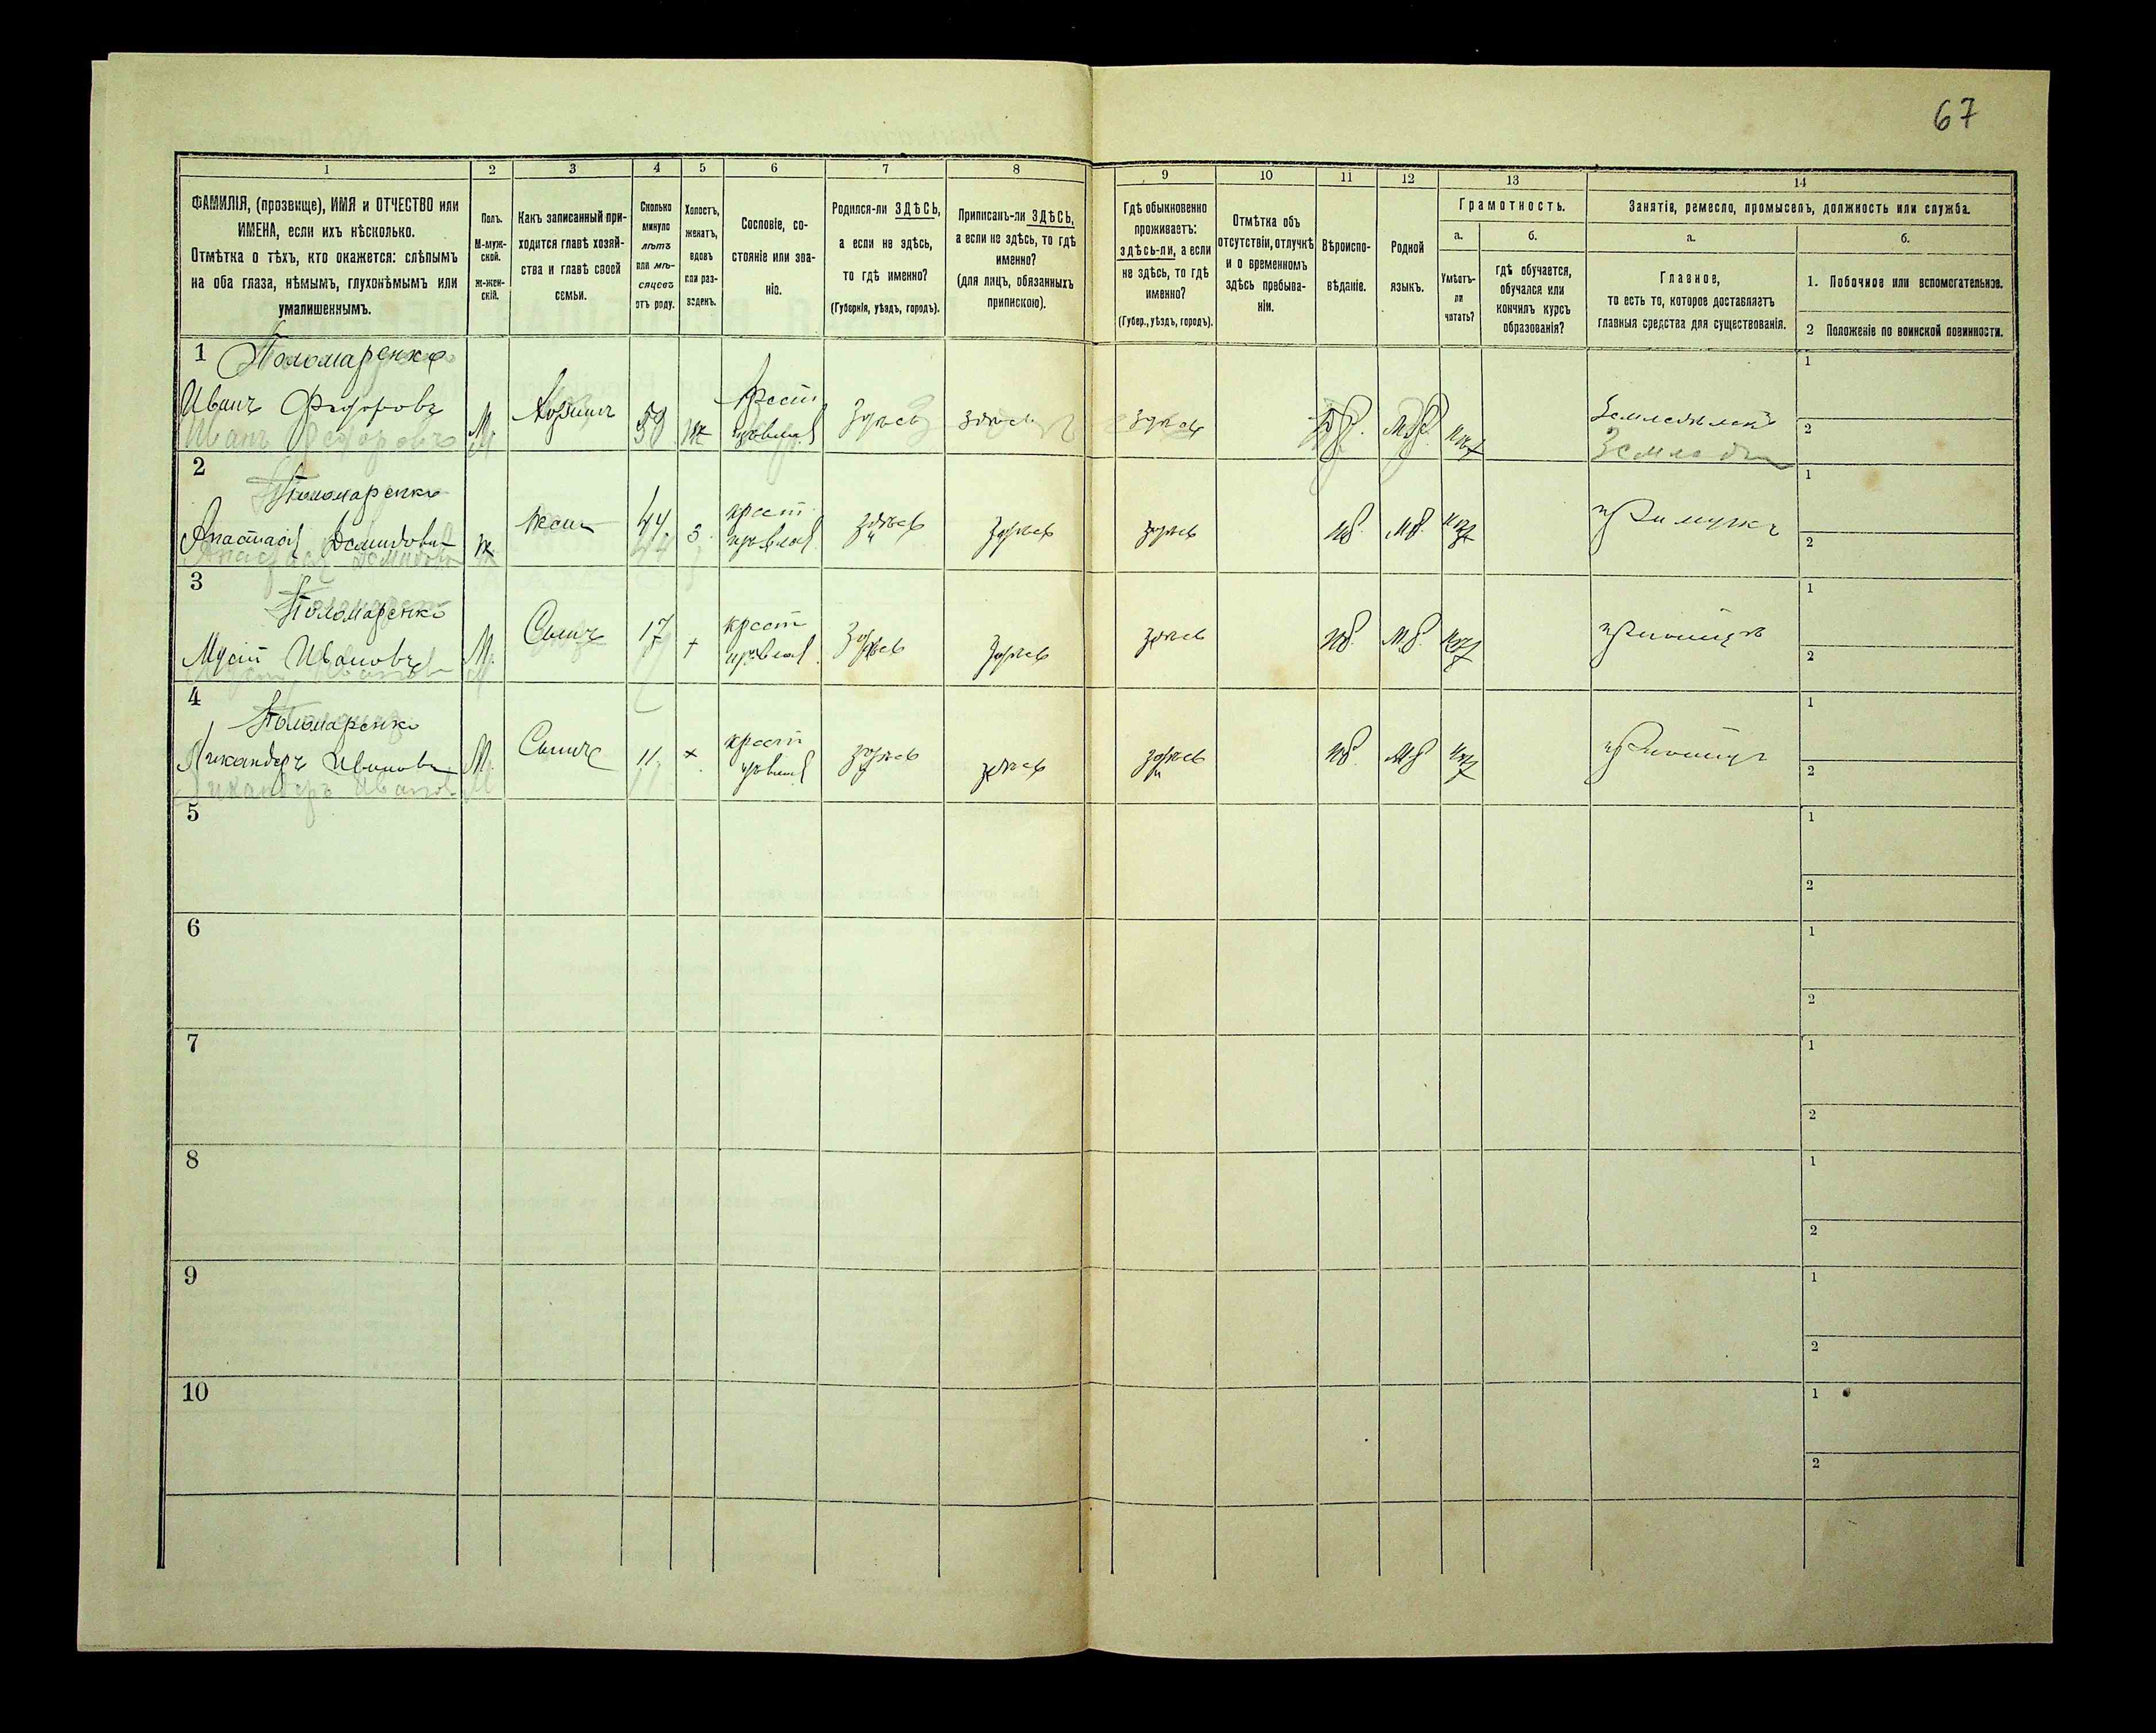 67
1 2 3 4 5 6 7 8 9 10 11 12 13 14
ФАМИЛІЯ, (прозвище), ИМЯ и ОТЧЕСТВО или
ИМЕНА, если ихъ нѣсколько.
Отмѣтка о тѣхъ, кто окажется: слѣпымъ
на оба глаза, нѣмымъ, глухонѣмымъ или
умалишеннымъ.
Полъ.
М-муж-
ской.
Ж-жен-
скій.
Какъ записанный при-
ходится главѣ хозяй-
ства и главѣ своей
семьи.
Сколько
минуло
лѣтъ
или мѣ-
сяцевъ
отъ роду.
Холостъ,
женатъ,
вдовъ
или раз-
веденъ.
Сословіе, со-
стояніе или зва-
ніе.
Родился-ли ЗДѢСЬ,
а если не здѣсь,
то гдѣ именно?
(Губернія, уѣздъ, городъ).
Приписанъ-ли ЗДѢСЬ,
а если не здѣсь, то гдѣ
именно?
(для лицъ, обязанныхъ
припискою).
Гдѣ обыкновенно
проживаетъ:
здѣсь-ли, а если
не здѣсь, то гдѣ
именно?
(Губер., уѣздъ, городъ).
Отмѣтка объ
отсутствіи, отлучкѣ
и о временномъ
здѣсь пребыва-
ніи.
Вѣроиспо-
вѣданіе.
Родной
языкъ.
Грамотность.
а.
Умѣетъ-
ли
читать?
б.
гдѣ обучается,
обучался или
кончилъ курсъ
образованія?
Занятіе, ремесло, промыселъ, должность или служба.
а.
Главное,
то есть то, которое доставляетъ
главныя средства для существованія.
б.
1. Побочное или вспомогательное.
2 Положеніе по воинской повинности.
1 Пономаренко
Иванъ Федоровъ М. Хозяинъ 59 крест здѣсь здѣсь здѣсь Земледѣлецъ
Иванъ Федоровъ
1
2
2 Пономаренко
Анастасія Демидова ж 44 з. крест здѣсь здѣсь здѣсь при мужѣ
Анастасія Демидова 44
1
2
3 Пономаренко
Мусій Ивановъ М. Сынъ 17 + крест здѣсь здѣсь здѣсь
1
2
4 Пономаренко
Никандръ Ивановъ М. Сынъ 11. + крест здѣсь здѣсь здѣсь
Никандръ Иванов М 11
1
2
5
1
2
6
1
2
7
1
2
8
1
2
9
1
2
10
1
2